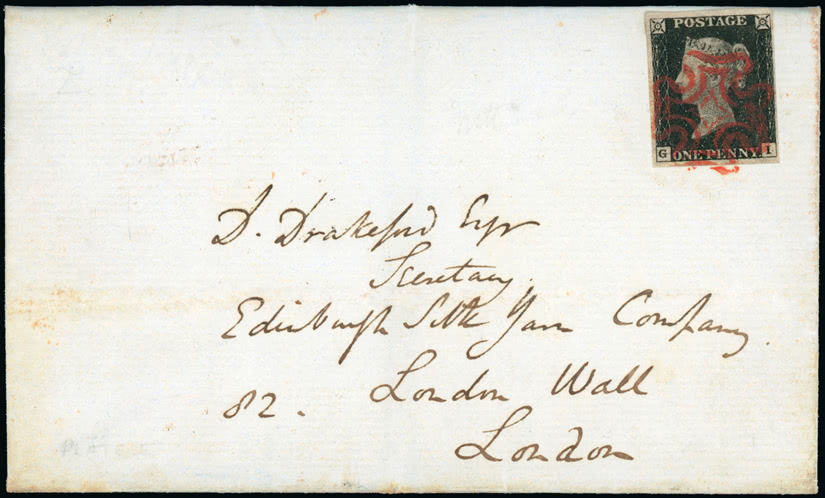 POSTAGE
G ONE PENNY. I
D. Drakeford Esqr
Secretary.
Edinburgh Silk Yarn Company.
82. London Wall
London